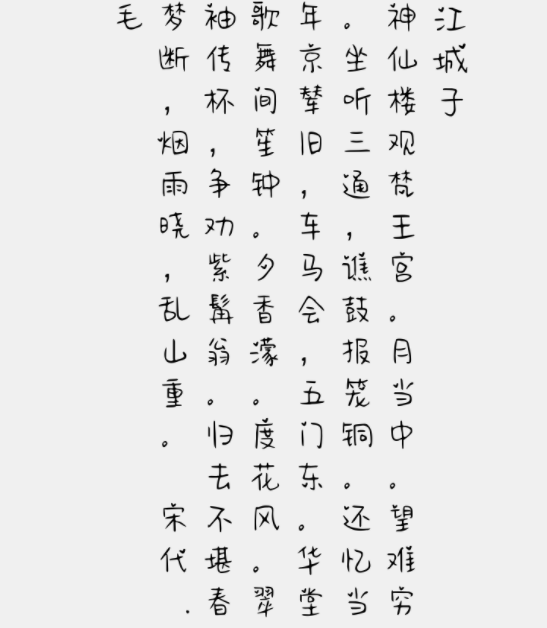 江城子
神仙楼观梵王宫。月当中。望难穷
。坐听三通，谯鼓报笼铜。还忆当
年京辇旧，车马会，五门东。华堂
歌舞间笙钟。夕香濛。度花风。翠
袖传杯，争劝紫髯翁。归去不堪春
梦断，烟雨晓，乱山重。 宋代.
毛